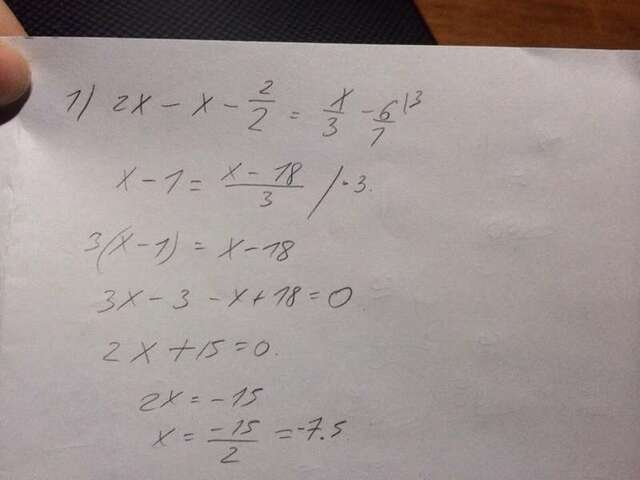 1) 2x - x - 2/2 = x/3 - 6/1 \3
x - 1 = (x - 18)/3 / · 3.
3(x - 1) = x - 18
3x - 3 - x + 18 = 0
2x + 15 = 0.
2x = -15
x = -15/2 = -7.5